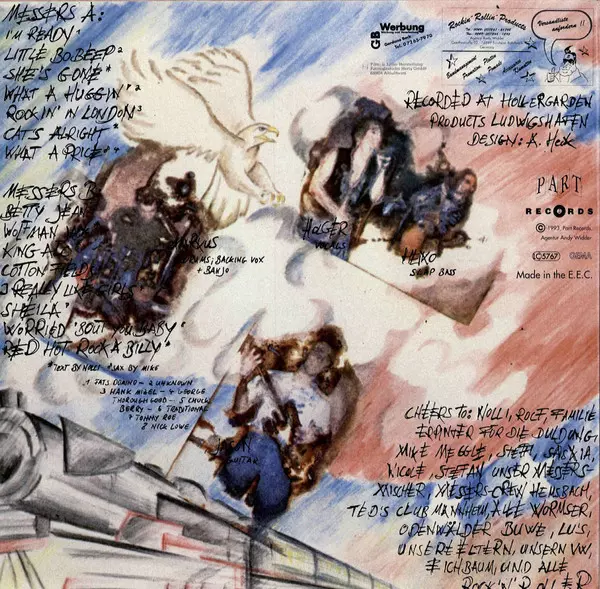 MESSERS A:
I'M READY¹
LITTLE BO.BEEP²
SHE'S GONE*
WHAT A HUGGIN'*²
ROCKIN' IN LONDON³
CATS ALRIGHT*
WHAT A PRICE
MESSERS B
BETTY JEAN
WOFMAN
KING
COTTON FIELDS
I REALLY LIKE GIRLS
SHEILA
WORRIED 'BOUT YOU BABY
RED HOT ROCK A BILLY
*TEXT BY *SAX BY MIKE
1 FATS DOMINO - 2 UNKNOWN
3 HANK MIZEL - 4 GEORGE
THOROUGHGOOD - 5 CHUCK
BERRY - 6 TRADITIONAL
7 TOMMY ROE
NICK LOWE
DRUMS; BACKING VOX
+ BANJO
HOLGER
VOCALS
HEIKO
SLAP BASS
GUITAR
GB Werbung
Rockin' Rollin' Products
Versandliste
anfordern !!
RECORDED AT HOLLERGARDEN
PRODUCTS LUDWIGSHAFEN
DESIGN: A. HECK
PART
RECORDS
© 1993, Part Records,
Agentur Andy Widder
LC 5767 GEMA
Made in the E.E.C.
CHEERS TO: NOLLI, ROLF, FAMILIE
FÜR DIE DULDUNG
MIKE MEGGLE, STEFF, SASKIA,
NICOLE, STEFAN UNSER MESSERS-
MISCHER, MESSERS-CREW HEMSBACH,
TED'S CLUB MANNHEIM, ALLE WORMSER,
ODENWÄLDER BUWE, LU'S,
UNSERE ELTERN, UNSERN VW,
EICHBAUM, UND ALLE
ROCK'N'ROLLER